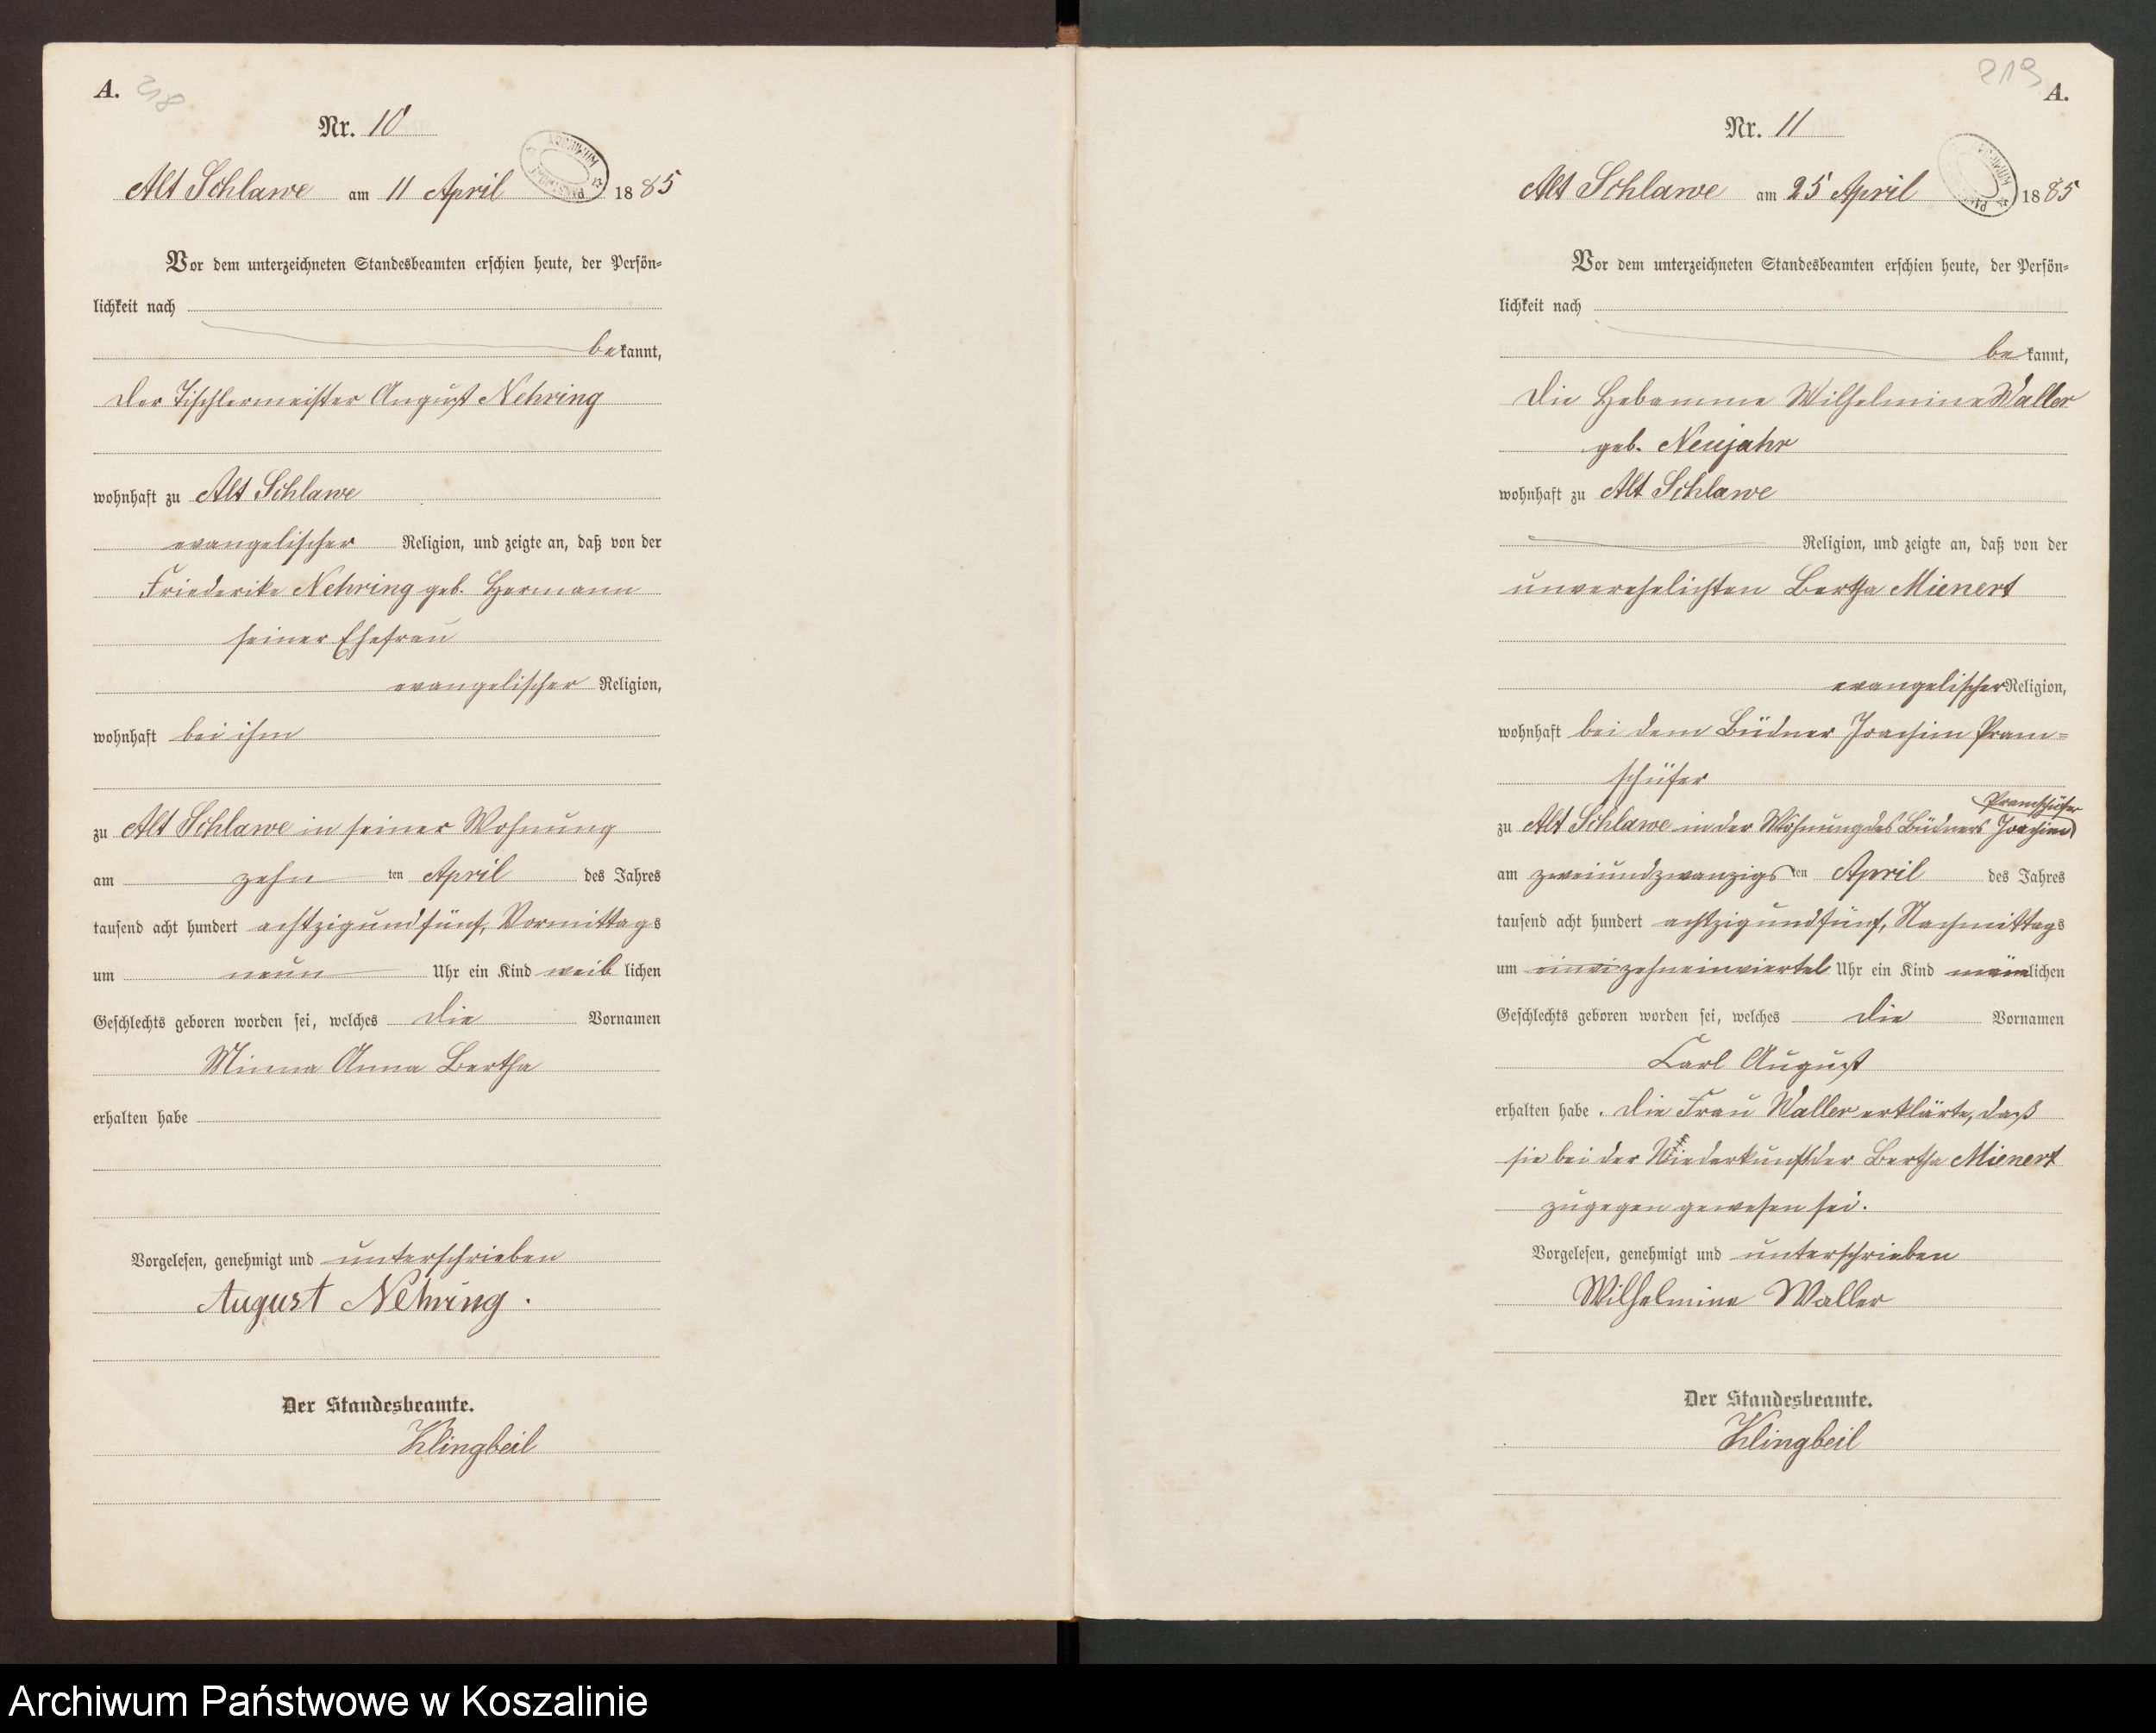 A. 218
Nr. 10
Alt Schlawe am 11 April 1885
ARCHIWUM
Vor dem unterzeichneten Standesbeamten erschien heute, der Persön-
lichkeit nach
bekannt,
der Tischlermeister August Nehring
wohnhaft zu Alt Schlawe
evangelischer Religion, und zeigte an, daß von der
Friederike Nehring geb. Hermann
seiner Ehefrau
evangelischer Religion,
wohnhaft bei ihm
zu Alt Schlawe in seiner Wohnung
am zehn ten April des Jahres
tausend acht hundert achtzigundfünf, Vormittags
um neun Uhr ein Kind weiblichen
Geschlechts geboren worden sei, welches die Vornamen
Minna Anna Bertha
erhalten habe
Vorgelesen, genehmigt und unterschrieben
August Nehring.
Der Standesbeamte.
Klingbeil
219
A.
Nr. 11
Alt Schlawe am 25 April 1885
Vor dem unterzeichneten Standesbeamten erschien heute, der Persön-
lichkeit nach
bekannt,
die Hebamme Wilhelmine Waller
geb. Neujahr
wohnhaft zu Alt Schlawe
Religion, und zeigte an, daß von der
unverehelichten Bertha Mienert
evangelischer Religion,
wohnhaft bei dem Büdner Joachim Pram=
schüfer
Pramschüfer
zu Alt Schlawe in der Wohnung des Büdners Joachim
am zweiundzwanzigsten April des Jahres
tausend acht hundert achtzigundfünf, Nachmittags
um zehneinviertel Uhr ein Kind männlichen
Geschlechts geboren worden sei, welches die Vornamen
Carl August
erhalten habe. Die Frau Waller erklärte, daß
sie bei der Niederkunft der Bertha Mienert
zugegen gewesen sei.
Vorgelesen, genehmigt und unterschrieben
Wilhelmine Waller
Der Standesbeamte.
Klingbeil
Archiwum Państwowe w Koszalinie